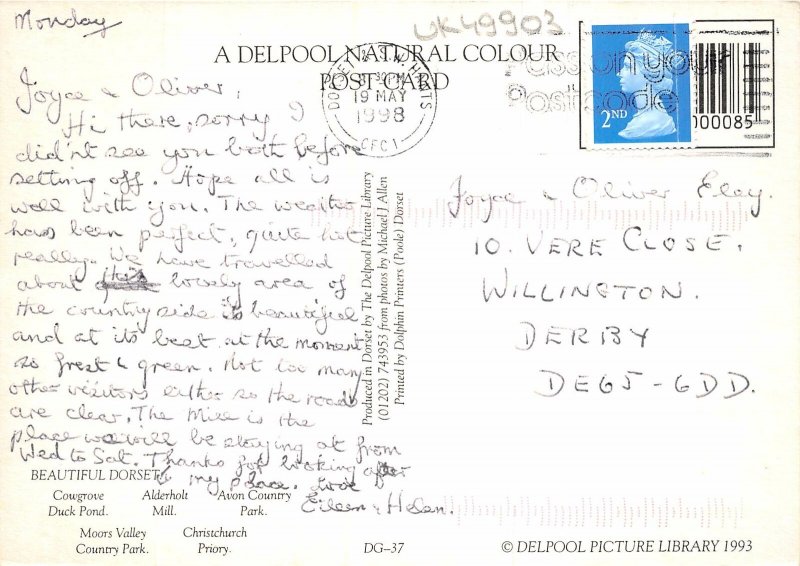 Monday
UK49903
A DELPOOL NATURAL COLOUR
POST CARD
DORSET & S.W. HANTS
19 MAY
1998
Pass on your
Postcode
2ND
000085
Joyce & Oliver,
Hi there, sorry I
didn't see you both before
setting off. Hope all is
well with you. The weather
has been perfect, quite hot
really. We have travelled
about this lovely area of
the country side is beautiful
and at its best at the moment
so fresh & green. Not too many
other visitors either so the roads
are clear. The Mill is the
place we will be staying at from
Wed to Sat. Thanks for looking after
my place. Love
Eileen & Helen.
Produced in Dorset by The Delpool Picture Library
(01202) 743953 from photos by Michael J Allen
Printed by Dolphin Printers (Poole) Dorset
Joyce & Oliver Eley.
10. VERE CLOSE.
WILLINGTON.
DERBY
DE65-6DD.
BEAUTIFUL DORSET
Cowgrove Duck Pond.
Alderholt Mill.
Avon Country Park.
Moors Valley Country Park.
Christchurch Priory.
DG–37
© DELPOOL PICTURE LIBRARY 1993